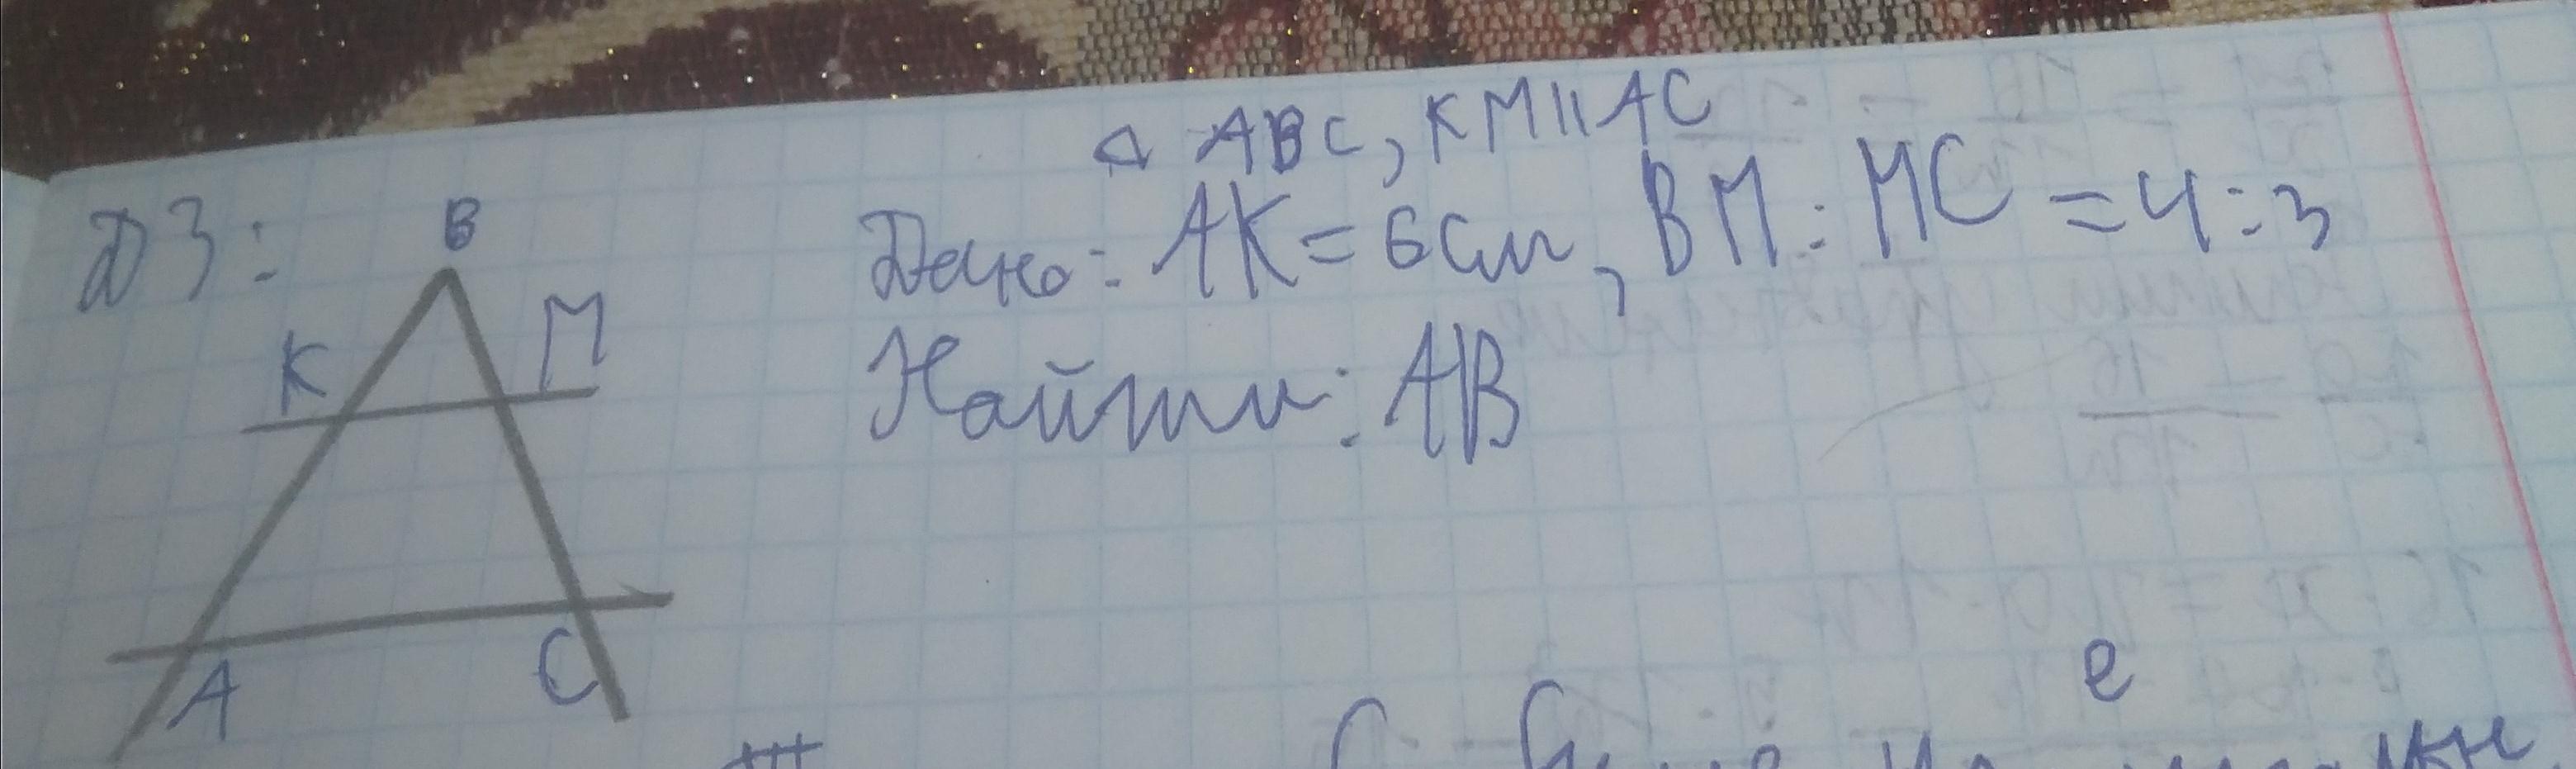 △ ABC, KM || AC
ДЗ:
Дано: AK = 6 см, BM : MC = 4 : 3
Найти: AB
B
K
M
A
C
е